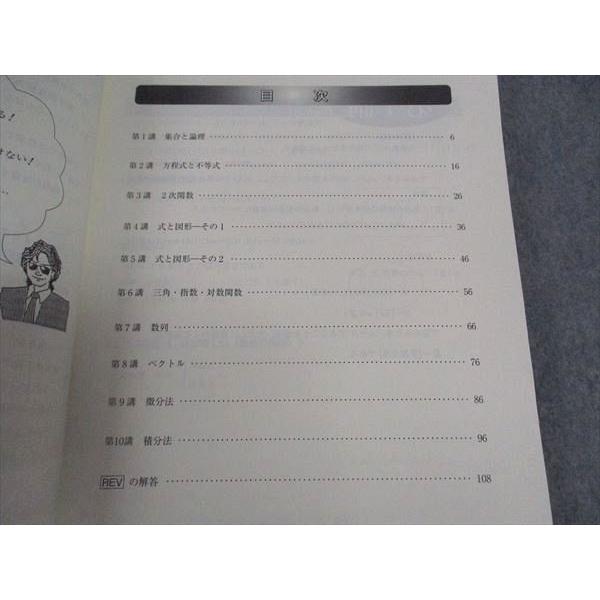 る！
けない！
…
目 次
第1講 集合と論理 …… 6
第2講 方程式と不等式 …… 16
第3講 2次関数 …… 26
第4講 式と図形―その1 …… 36
第5講 式と図形―その2 …… 46
第6講 三角・指数・対数関数 …… 56
第7講 数列 …… 66
第8講 ベクトル …… 76
第9講 微分法 …… 86
第10講 積分法 …… 96
REV の解答 …… 108